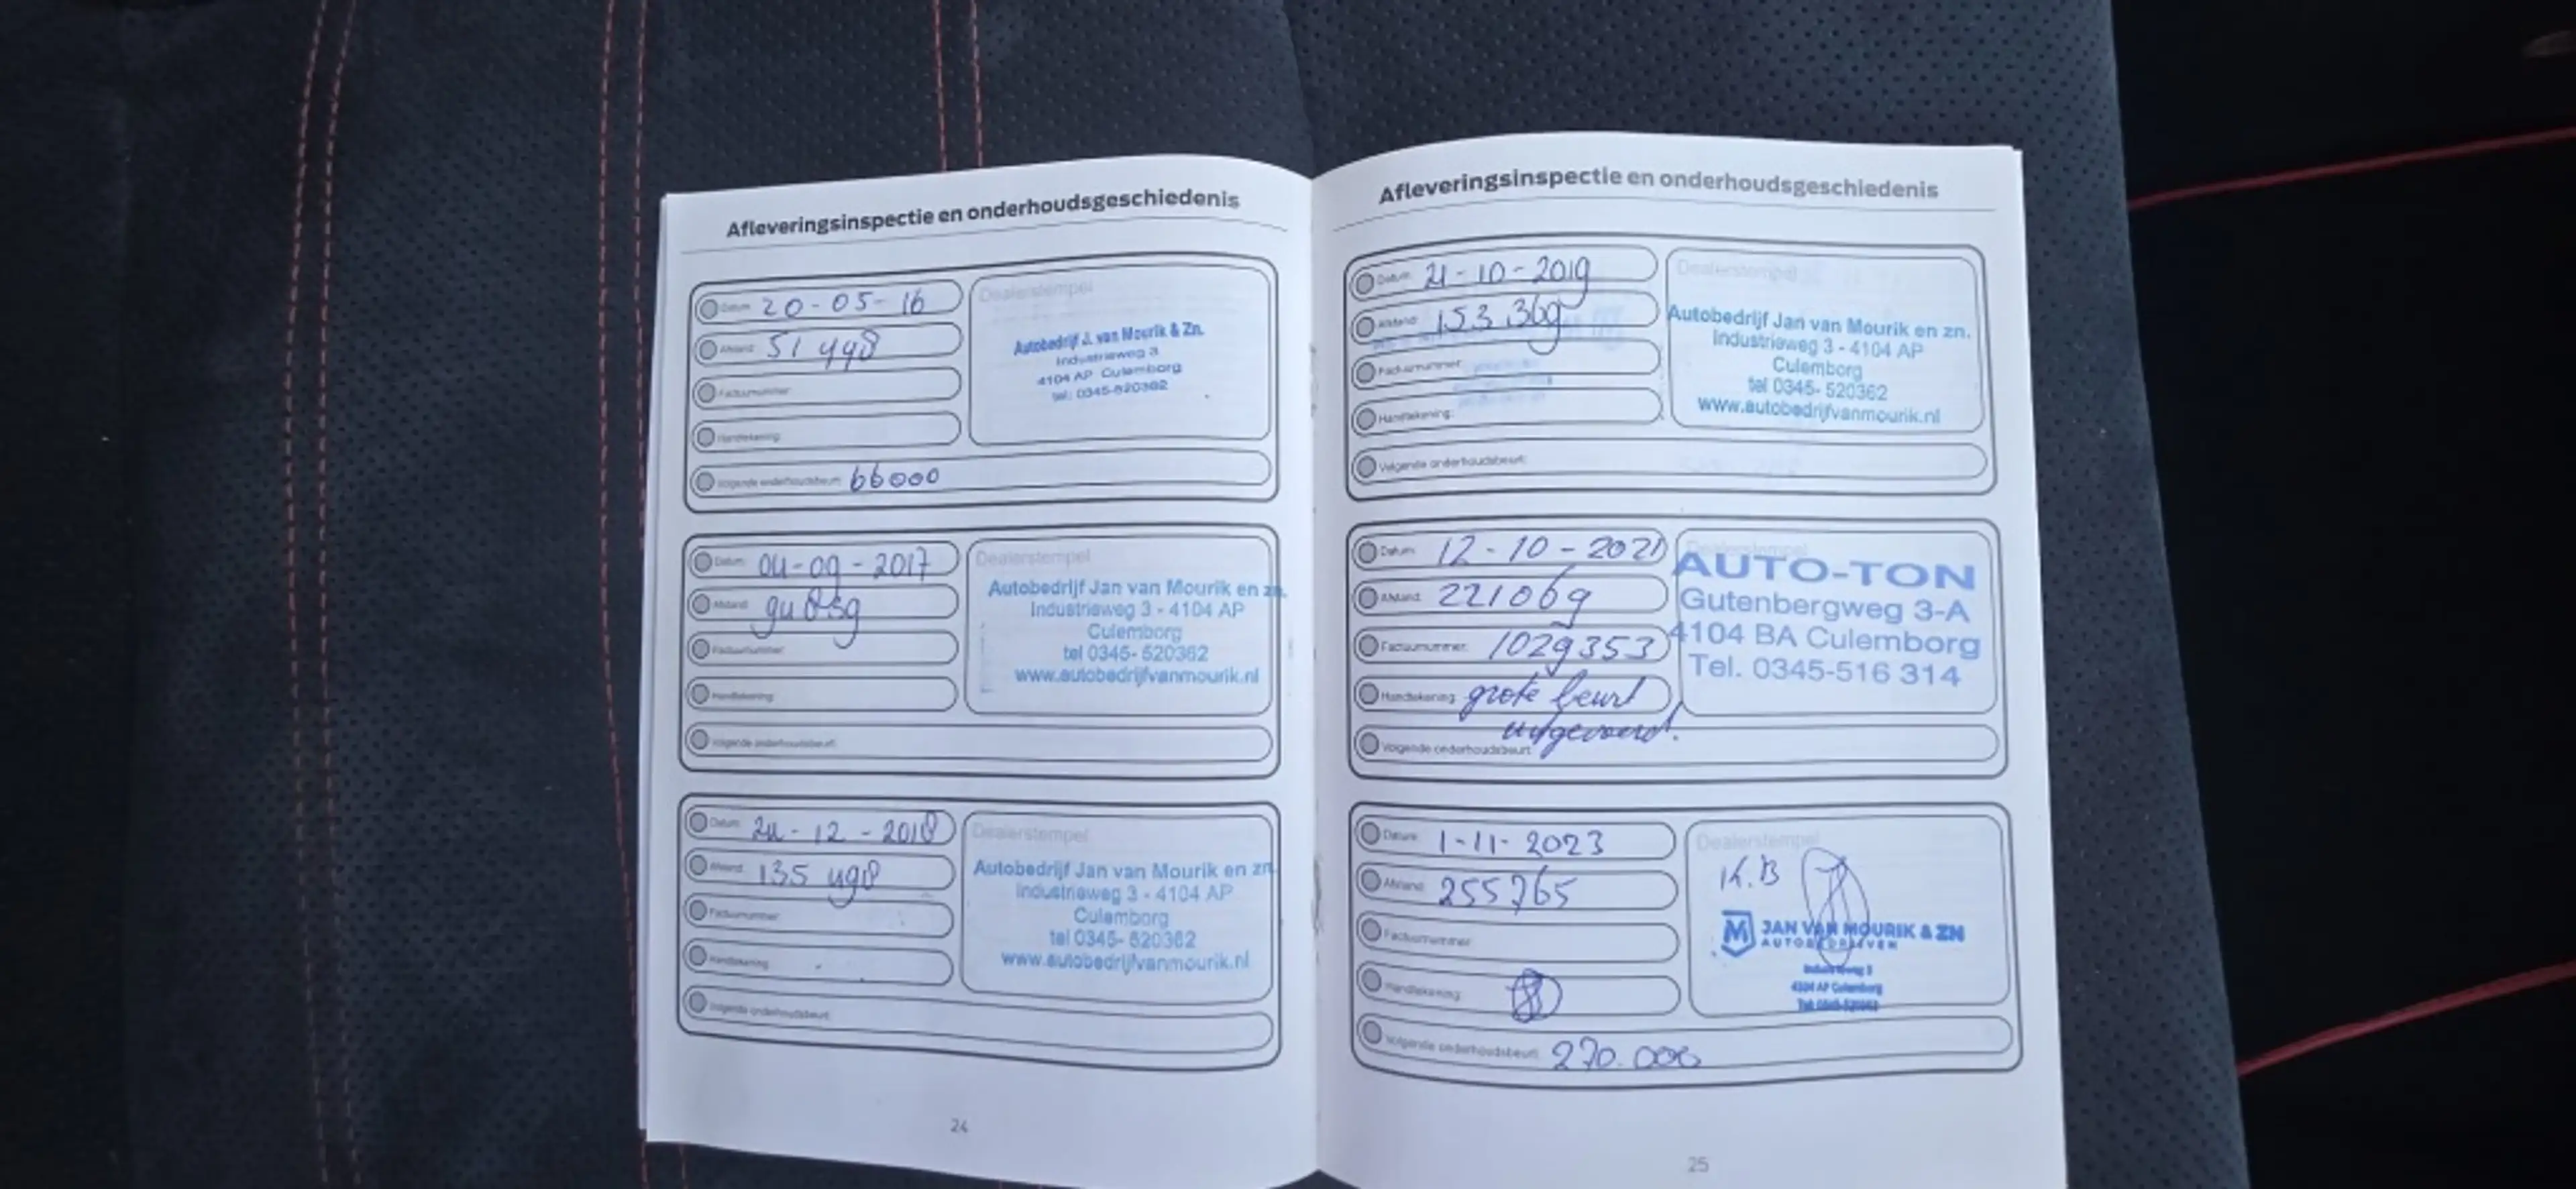 Afleveringsinspectie en onderhoudsgeschiedenis
Datum: 20-05-16
Afstand: 51 448
Factuurnummer:
Handtekening:
Volgende onderhoudsbeurt: 66000
Dealerstempel
Autobedrijf J. van Mourik & Zn.
Industrieweg 3
4104 AP Culemborg
tel: 0345-520362
Datum: 04-09-2017
Afstand:
Factuurnummer:
Handtekening:
Volgende onderhoudsbeurt:
Dealerstempel
Autobedrijf Jan van Mourik en zn.
Industrieweg 3 - 4104 AP
Culemborg
tel 0345- 520362
www.autobedrijfvanmourik.nl
Datum: 24-12-2018
Afstand: 135 498
Factuurnummer:
Handtekening:
Volgende onderhoudsbeurt:
Dealerstempel
Autobedrijf Jan van Mourik en zn.
Industrieweg 3 - 4104 AP
Culemborg
tel 0345- 520362
www.autobedrijfvanmourik.nl
24
Afleveringsinspectie en onderhoudsgeschiedenis
Datum: 21-10-2019
Afstand: 153.369
Factuurnummer:
Handtekening:
Volgende onderhoudsbeurt:
Dealerstempel
Autobedrijf Jan van Mourik en zn.
Industrieweg 3 - 4104 AP
Culemborg
tel 0345- 520362
www.autobedrijfvanmourik.nl
Datum: 12-10-2021
Afstand: 221069
Factuurnummer: 1029353
Handtekening: grote beurt
uitgevoerd.
Volgende onderhoudsbeurt:
Dealerstempel
AUTO-TON
Gutenbergweg 3-A
4104 BA Culemborg
Tel. 0345-516 314
Datum: 1-11-2023
Afstand: 255765
Factuurnummer:
Handtekening:
Volgende onderhoudsbeurt: 270.000
Dealerstempel
K.B
JAN VAN MOURIK & ZN
AUTOBEDRIJVEN
Industrieweg 3
4104 AP Culemborg
Tel: 0345-520362
25